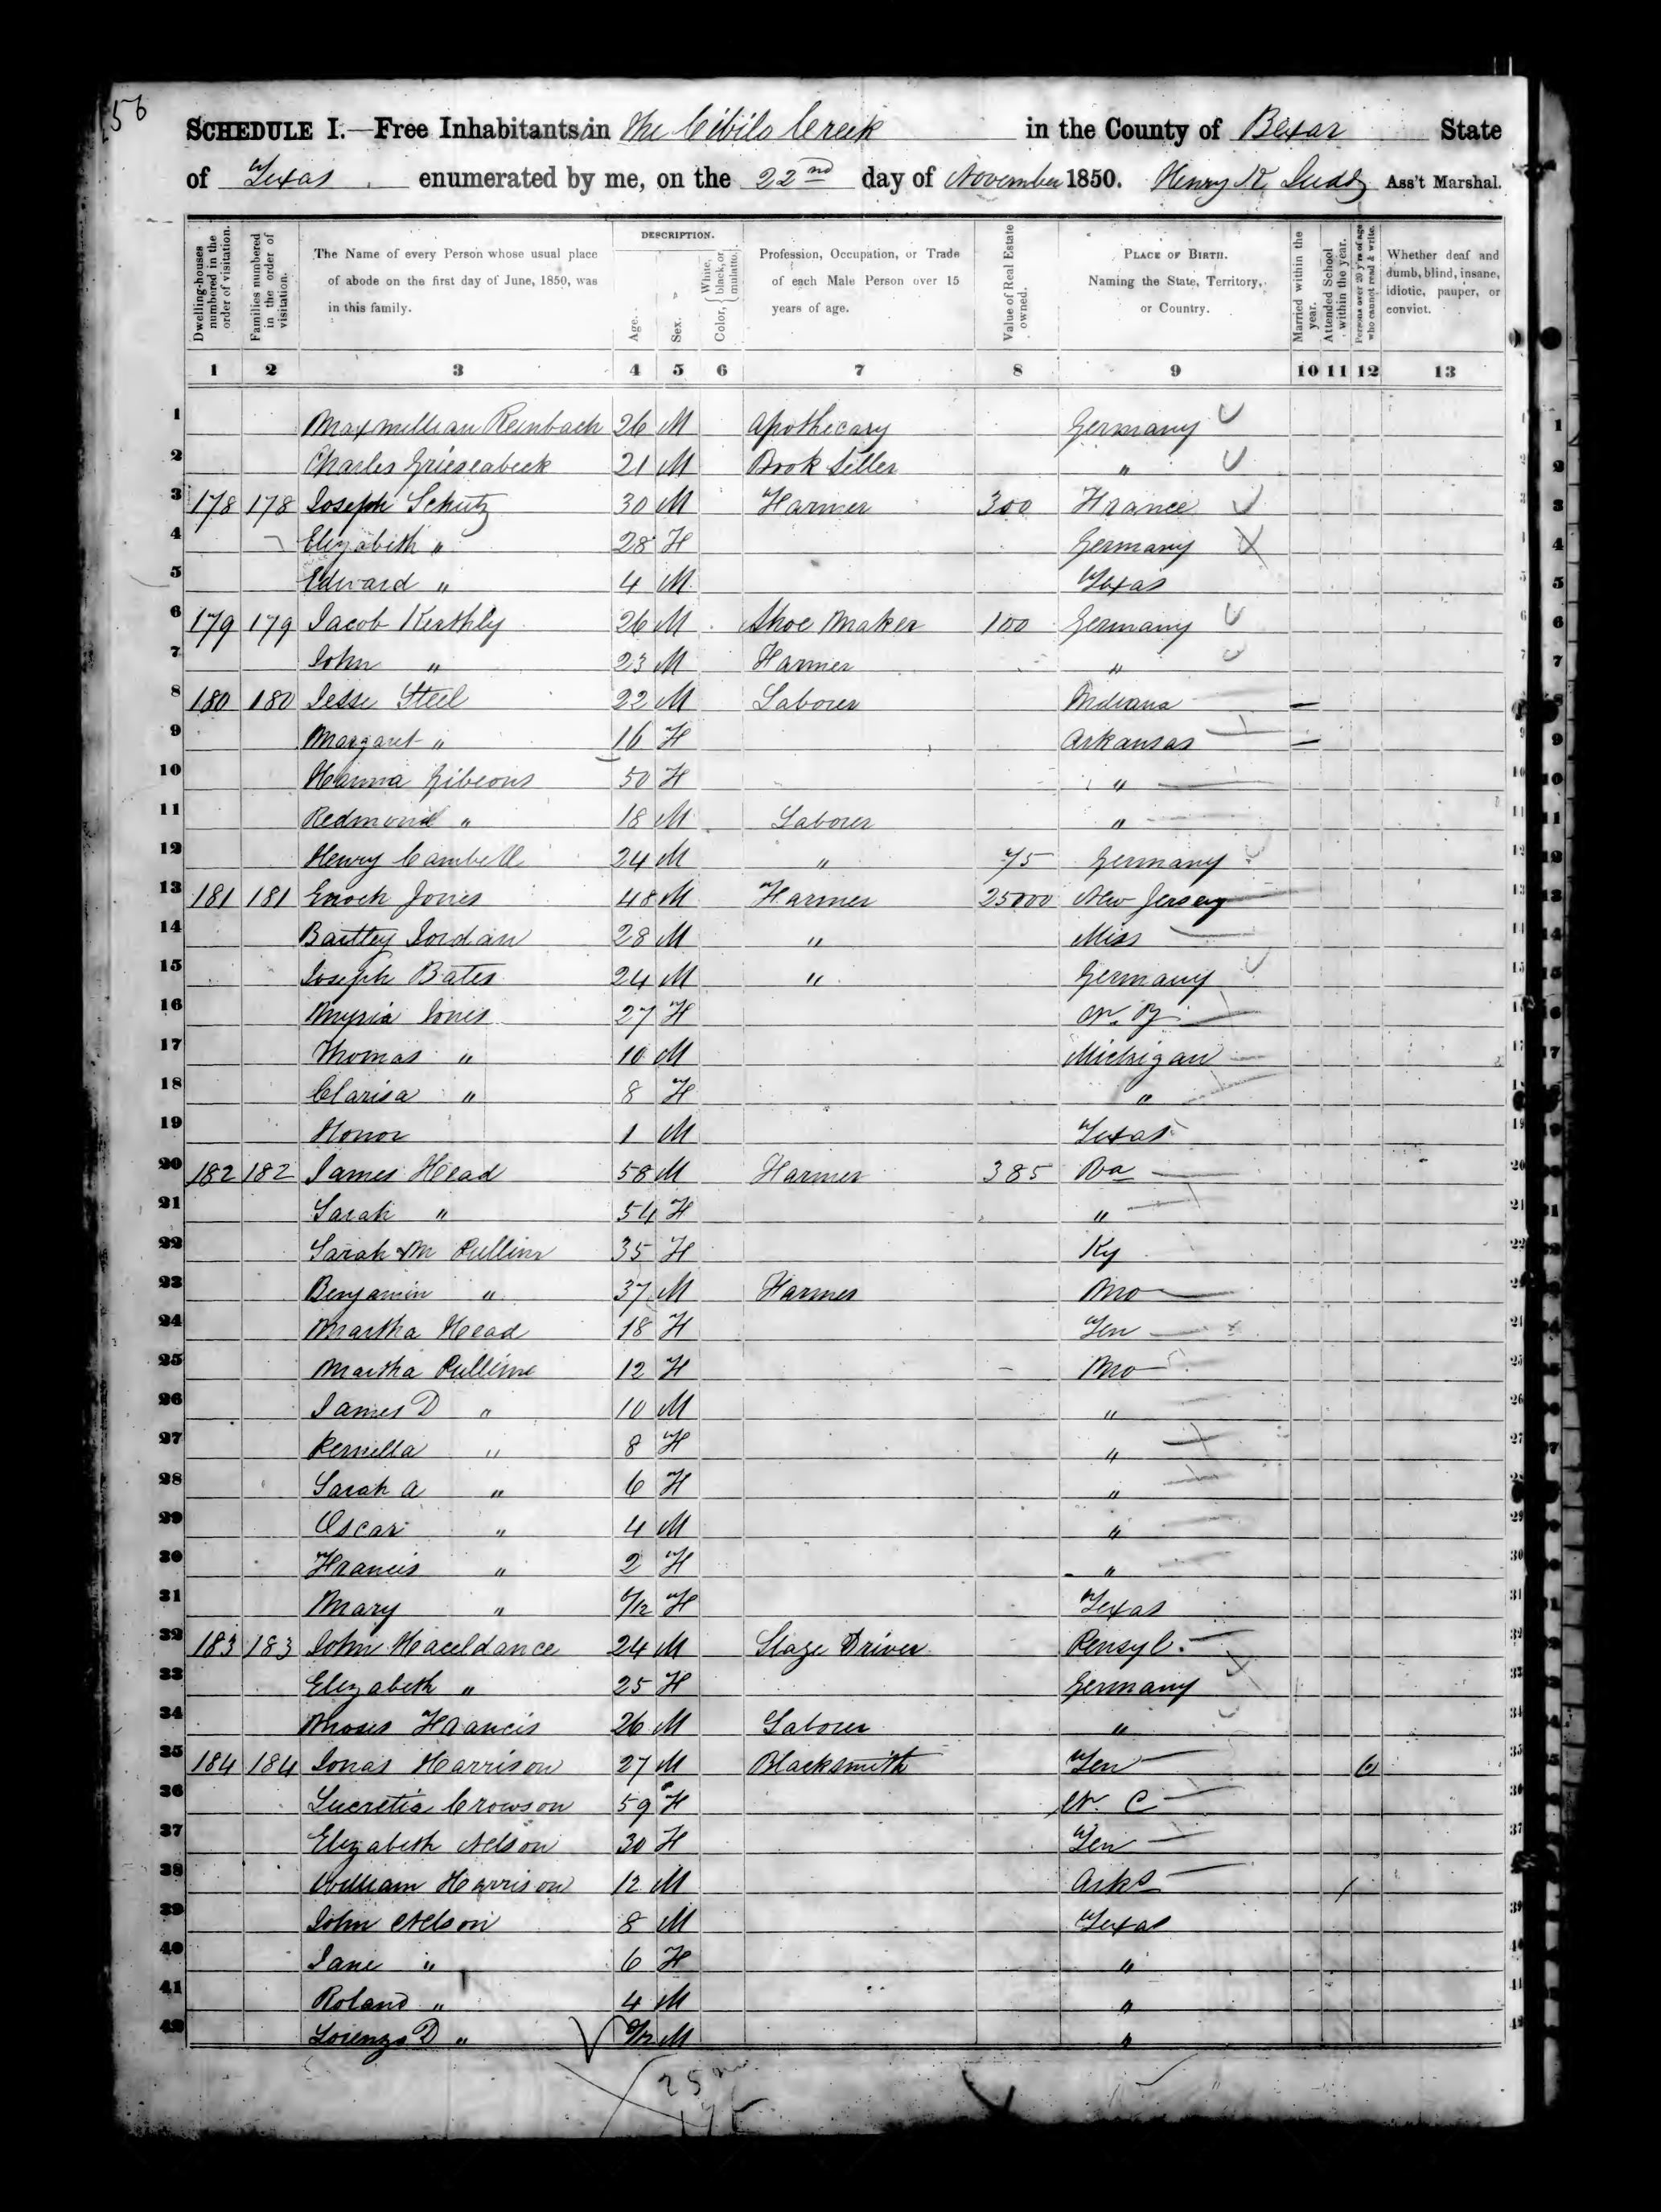 56
SCHEDULE I.—Free Inhabitants in the Cibilo Creek in the County of Bexar State
of Texas enumerated by me, on the 22nd day of November 1850. Henry K Ass't Marshal.
Dwelling-houses numbered in the order of visitation.
Families numbered in the order of visitation.
The Name of every Person whose usual place of abode on the first day of June, 1850, was in this family.
DESCRIPTION.
Age.
Sex.
Color, { White, black, or mulatto.
Profession, Occupation, or Trade of each Male Person over 15 years of age.
Value of Real Estate owned.
PLACE OF BIRTH. Naming the State, Territory, or Country.
Married within the year.
Attended School within the year.
Persons over 20 y'rs of age who cannot read & write.
Whether deaf and dumb, blind, insane, idiotic, pauper, or convict.
1 2 3 4 5 6 7 8 9 10 11 12 13
1 Maxmillian Reinbach 26 M Apothecary Germany 1
2 Charles Grieseabeck 21 M Book Seller " 2
3 178 178 Joseph Schutz 30 M Farmer 300 France 3
4 Elizabeth " 28 F Germany 4
5 Edward " 4 M Texas 5
6 179 179 Jacob Kerthly 26 M Shoe Maker 100 Germany 6
7 John " 23 M Farmer " 7
8 180 180 Jesse Steel 22 M Laborer Indiana 8
9 Margaret " 16 F Arkansas 9
10 Gibeons 50 F " 10
11 Redmond " 18 M Laborer " 11
12 Henry Cambell 24 M " 75 Germany 12
13 181 181 Enoch Jones 48 M Farmer 25000 New Jersey 13
14 Bartley Jordan 28 M " Miss 14
15 Joseph Bates 24 M " Germany 15
16 Myria Jones 27 F N. Y 16
17 Thomas " 10 M Michigan 17
18 Clarisa " 8 F " 18
19 Honor 1 M Texas 19
20 182 182 James Head 58 M Farmer 385 Va 20
21 Sarah " 54 F " 21
22 Sarah M Pullim 35 F Ky 22
23 Benjamin " 37 M Farmer Mo 23
24 Martha Head 18 F Ten 24
25 Martha Pullim 12 F Mo 25
26 James D " 10 M " 26
27 Permella " 8 F " 27
28 Sarah A " 6 F " 28
29 Oscar " 4 M " 29
30 Francis " 2 F " 30
31 Mary " 6/12 F Texas 31
32 183 183 John Haceldance 24 M Stage Driver Pensyl. 32
33 Elizabeth " 25 F Germany 33
34 Moses Francis 26 M Laborer " 34
35 184 184 Jonas Harrison 27 M Blacksmith Ten 35
36 Lucretia Crowson 59 F N. C 36
37 Elizabeth Nelson 30 F Ten 37
38 William Harrison 12 M Arks / 38
39 John Nelson 8 M Texas 39
40 Jane " 6 F " 40
41 Roland " 4 M " 41
42 Lorenzo D " M " 42
25 m